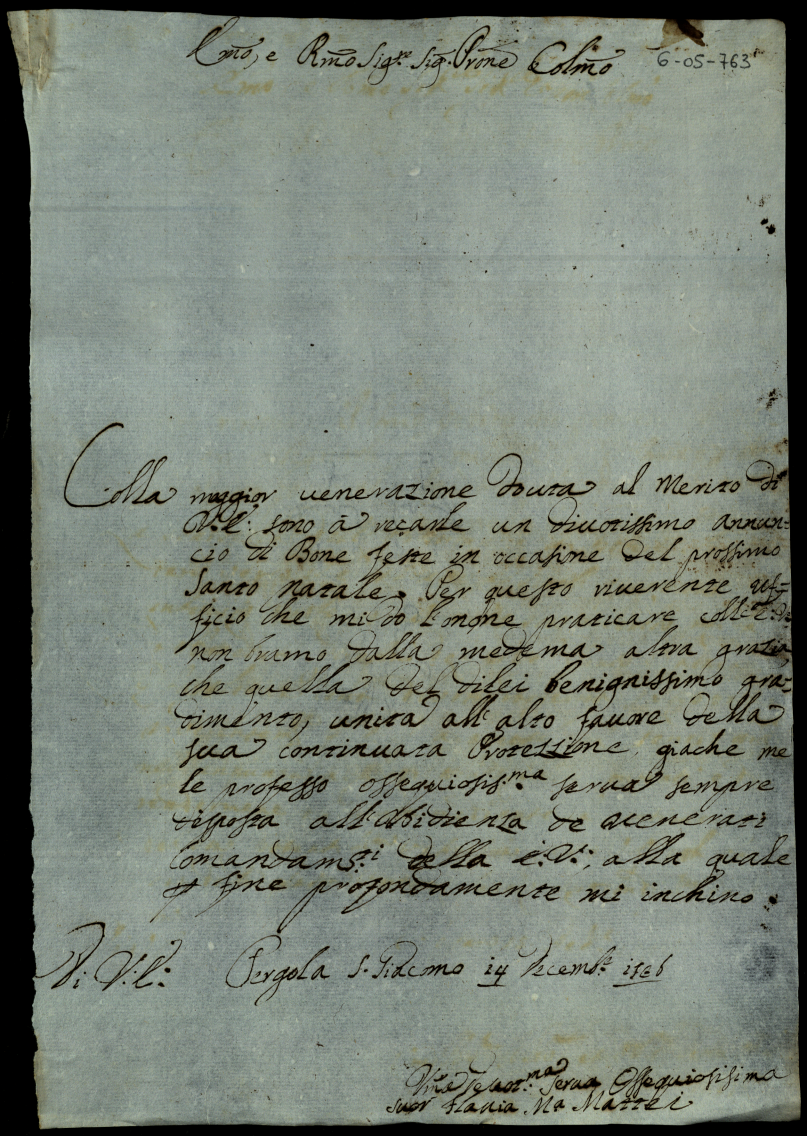 Emo, e Rmo Sigre Sigr Prone Colmo
6-05-763
Colla maggior venerazione douta al Merito di
V: E: sono à recarle un divotissimo annun-
cio di Bone feste in occasine del prossimo
Santo natale. Per questo riverente uf-
ficio che mi dò l'onore praticare coll' E: V:
non bramo dalla medema altra grazia
che quella del dilei benignissimo gra-
dimento, unita all' alto favore della
sua continuata Protezzione giache me
le professo ossequiosis.ma serva sempre
disposta all' obidienza de venerati
Comandam.ti della E: V:, alla quale
fine profondamente mi inchino.
Di V: E: Pergola S. Giacomo 14 Decemb.e
Serva Ossequiosisima
Suor Flavia Ma Mattei